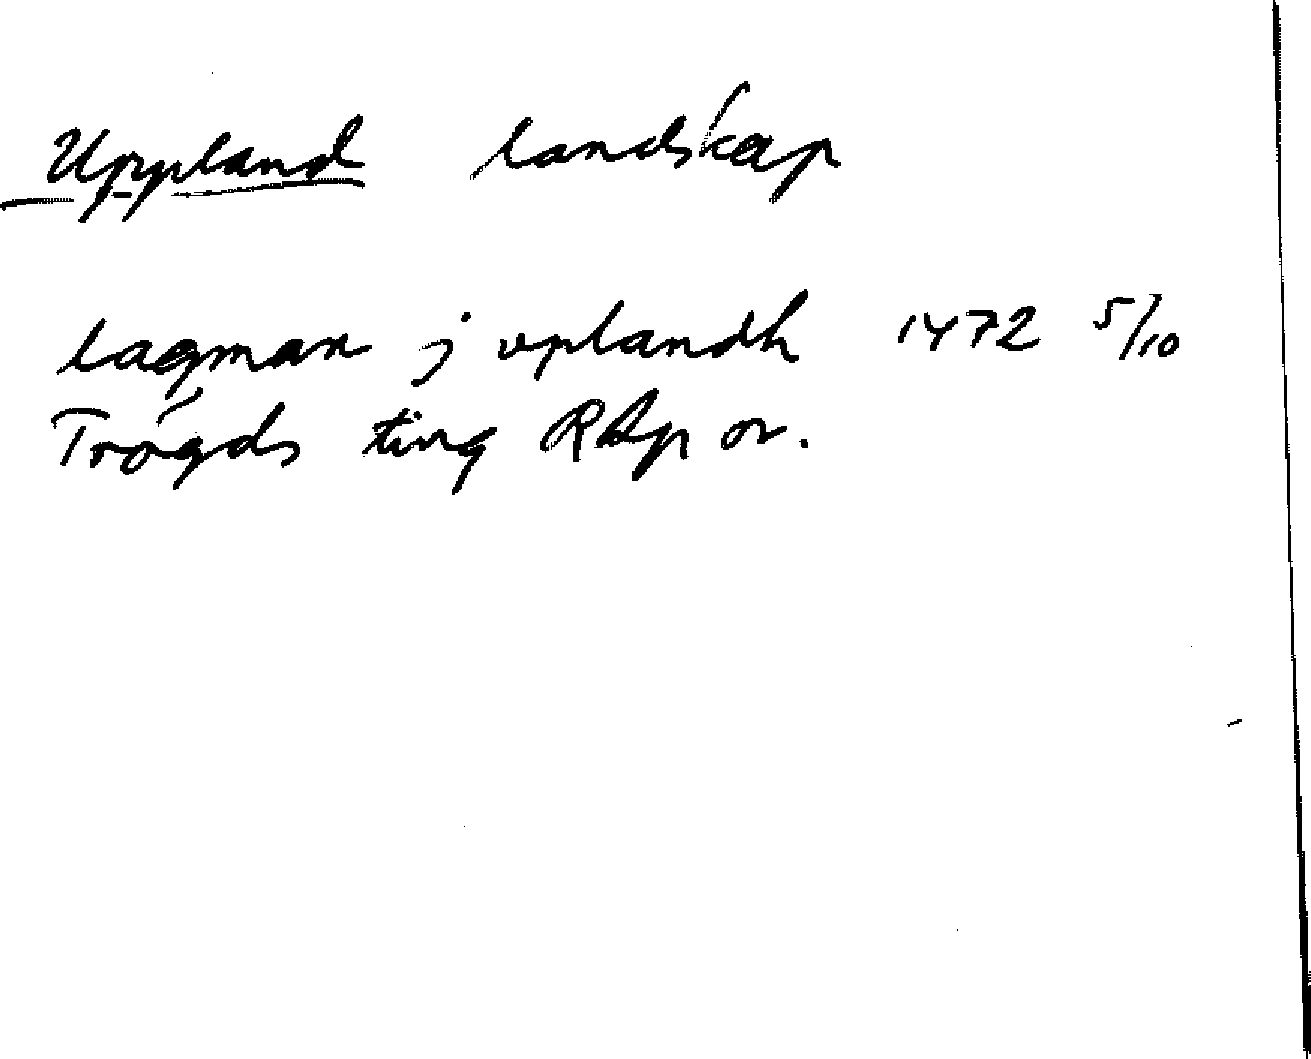 Uppland landskap
lagman j vplandh 1472 5/10
Trögds ting RAp or.